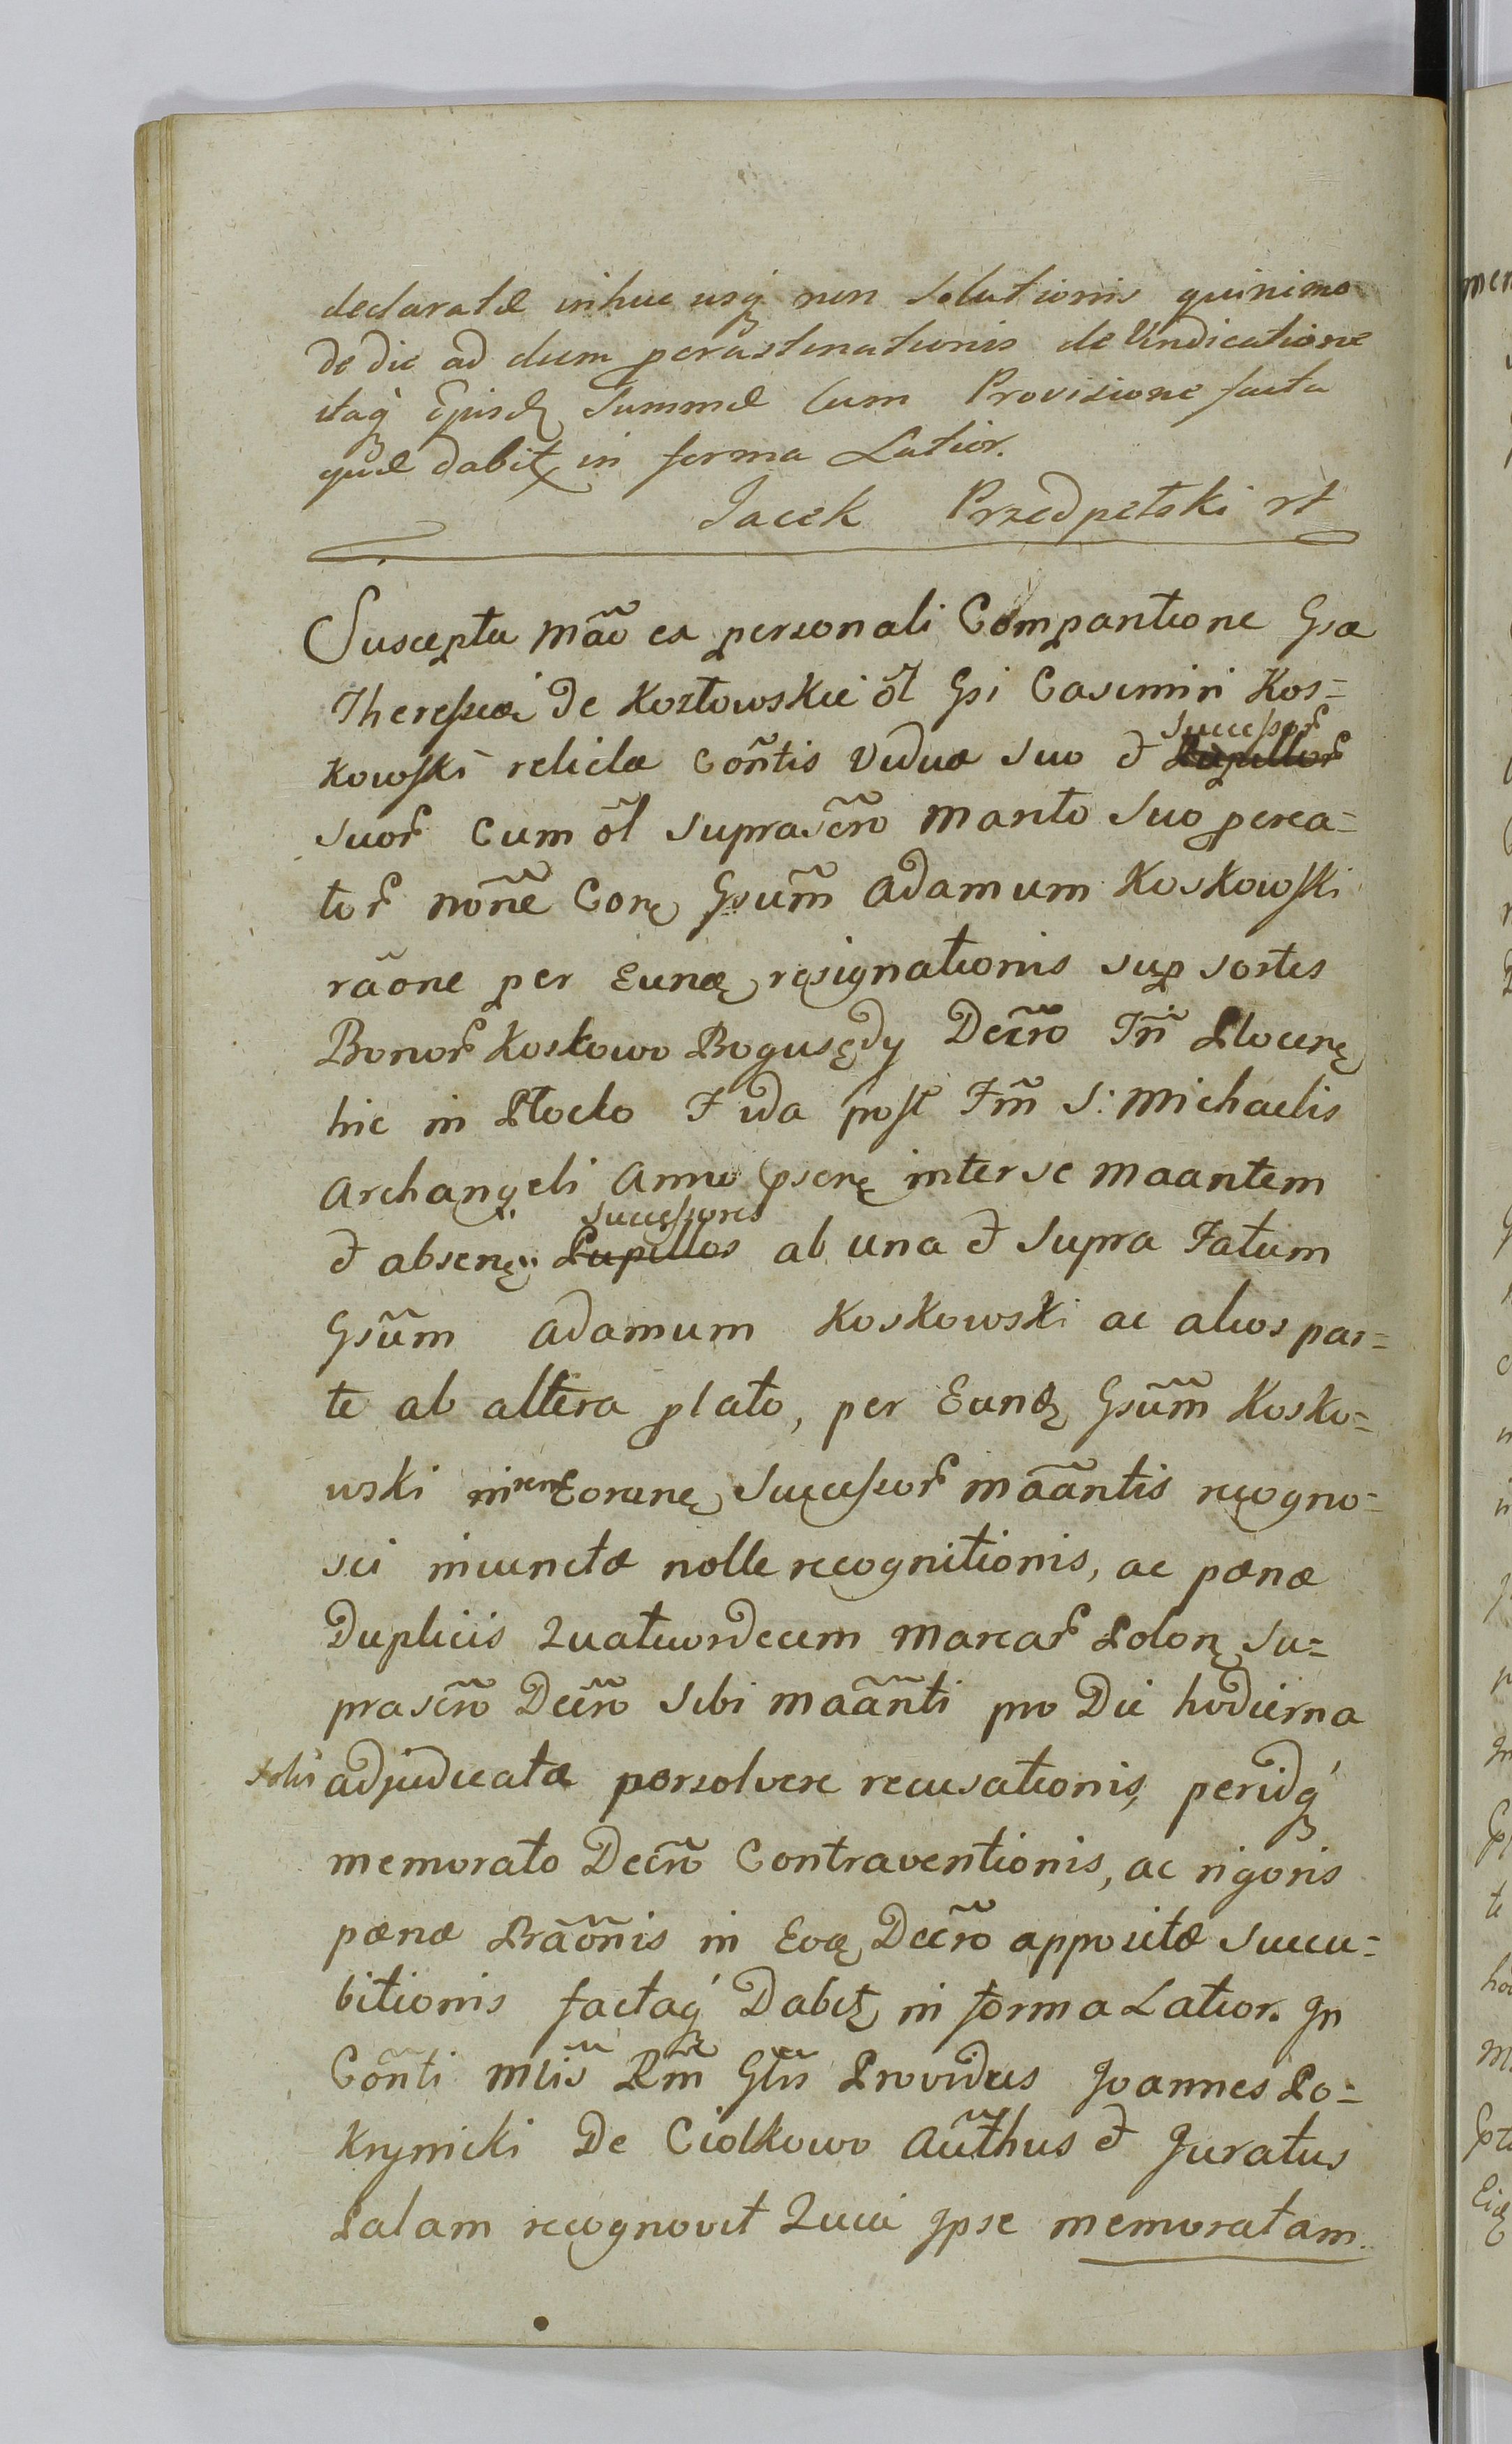 declaratæ inhuc usq́ non Solutionis quinimo
de die ad diem perastinationis de Vindicatione
itaq́ Ejusd Summæ Cum Provisione facta
quæ dabit in forma Latior.
Jacek Przedpełski rt
Suscepta mão ea personali Comparitione Gsæ
Theressiæ de Kozłowskie õl Gsi Casimiri Kos=
kowski relictæ Coñtis Viduæ suo et
Successor
Pupillor
suor Cum õl suprascr̃o Marito suo procrea=
tor noñe Cor Gsum̃ Adamum Koskowski
rãone per Eund resignationis sup sortis
Bonor Koskowo Bogusędy Decr̃o Tr̃i Plocen
hic in Płocko F IIda post Fm̃ S: Michaelis
Archangeli Anno psen inter se Maantem
Successores
et absen Pupillos ab una et supra Fatum
Gsũm Adamum Koskowski ac alios par=
te ab altera plato, per Eund Gsum̃ Kosko=
wski in rem Eorund Successor mããntis recogno=
sci injunctæ nolle recognitionis, ac pænæ
Duplicis Quatuordecim Marcar Polon su=
prascr̃o Decr̃o sibi mããnti pro Die hodierna
solvi adjudicatæ persolvere recusationis, peridq́
memorato Decr̃o Contraventionis, ac rigoris
pænæ Bãõnis in Eod Decr̃o appositæ Succu=
bitionis factaq́ Dabit in forma Latior. Jn
Cõñti Mĩĩs Rm̃ Gl̃is Providus Joannes Po=
krynicki De Ciołkowo Aut̃hus et Juratus
Palam recognovit Quia Jpse memoratam.